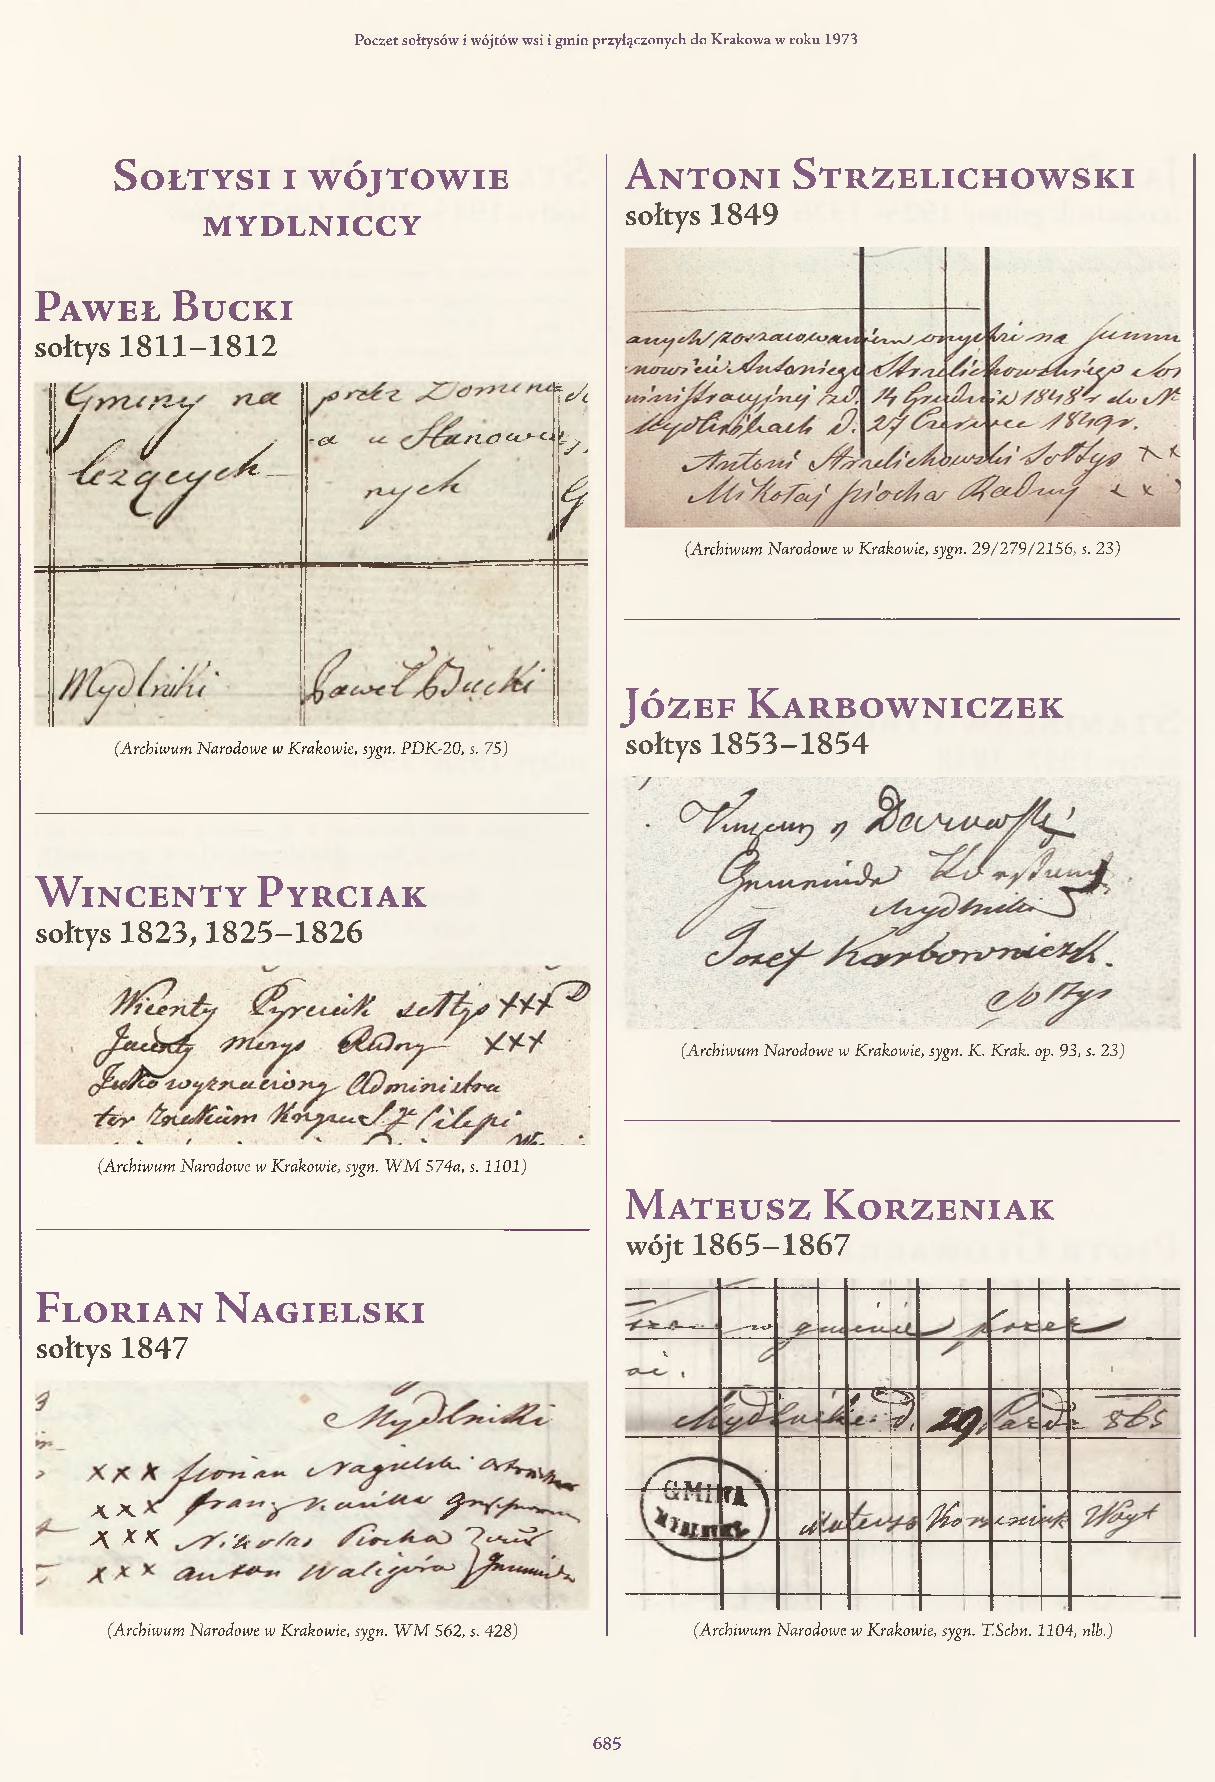 Poczet sołtysów i wójtów wsi i gmin przyłączonych do Krakowa w roku 1973
Sołtysi i wójtowie
mydlniccy
Paweł Bucki
sołtys 1811–1812
Gminy na przez Domini
leżących a u Stanowią
nych
Mydlniki Paweł Bucki
(Archiwum Narodowe w Krakowie, sygn. PDK-20, s. 75)
Wincenty Pyrciak
sołtys 1823, 1825–1826
Wicenty Pyrciak sołtys XXX
Jacenty Merys Radny XXX
Jako wyznaciony Administra
tor
(Archiwum Narodowe w Krakowie, sygn. WM 574a, s. 1101)
Florian Nagielski
sołtys 1847
Mydlniki
XXX Florian Nagielski
XXX Franz
XXX Nikolas Piocha
XXX Anton Waligóra
(Archiwum Narodowe w Krakowie, sygn. WM 562, s. 428)
Antoni Strzelichowski
sołtys 1849
anych zoszacowaniem onychże na Summ
nowicie Antoniego Strzelichowskiego Soł
ministracyjnej z d. 14 Grudnia 1848 r do Nr
Mydlnikach d. 27 Czerwca 1849 r.
Antoni Strzelichowski Sołtys X X
Mikołaj Piocha Radny x x
(Archiwum Narodowe w Krakowie, sygn. 29/279/2156, s. 23)
Józef Karbowniczek
sołtys 1853–1854
Darowski
Gemeinde Vorstand
Mydlniki
Jozef Karbowniczek.
Sołtys
(Archiwum Narodowe w Krakowie, sygn. K. Krak. op. 93, s. 23)
Mateusz Korzeniak
wójt 1865–1867
w gminie przez
Mydlniki d. 29 Paźdz 865
GMINA
MYDLNIKI
Mateusz Korzeniak Woyt
(Archiwum Narodowe w Krakowie, sygn. T.Schn. 1104, nlb.)
685